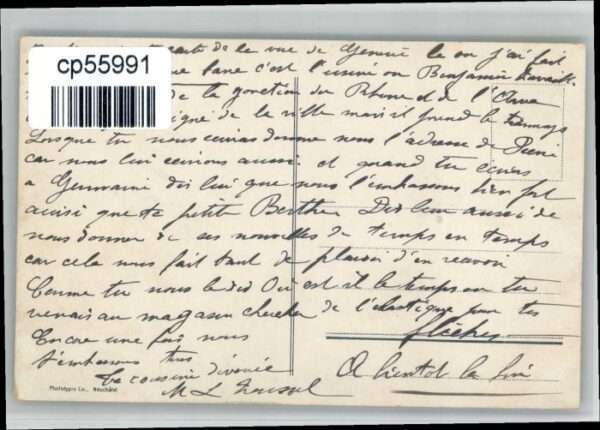 cp55991
carte de la vue de Genève le ou j'ai fait
une barre c'est l'usine ou Benjamin travaille
de la jonction du Rhone et de l'Arve
de la ville mais il prend le tramway
Lorsque tu nous écriras donne nous l'adresse de
car nous lui écrirons aussi et quand tu écriras
a Germaine dis lui que nous l'embrassons bien fort
ainsi que ta petite Berthe Dis leur aussi de
nous donner de ses nouvelles de temps en temps
car cela nous fait tant de plaisir d'en recevoir
Comme tu nous le dis Où est il le temps ou tu
venais au magasin chercher de l'élastique pour tes
flèches
Encore une fois nous
t'embrassons tous
Ta cousine dévouée
M L
A bientot la fin
Phototypie Co., Neuchâtel